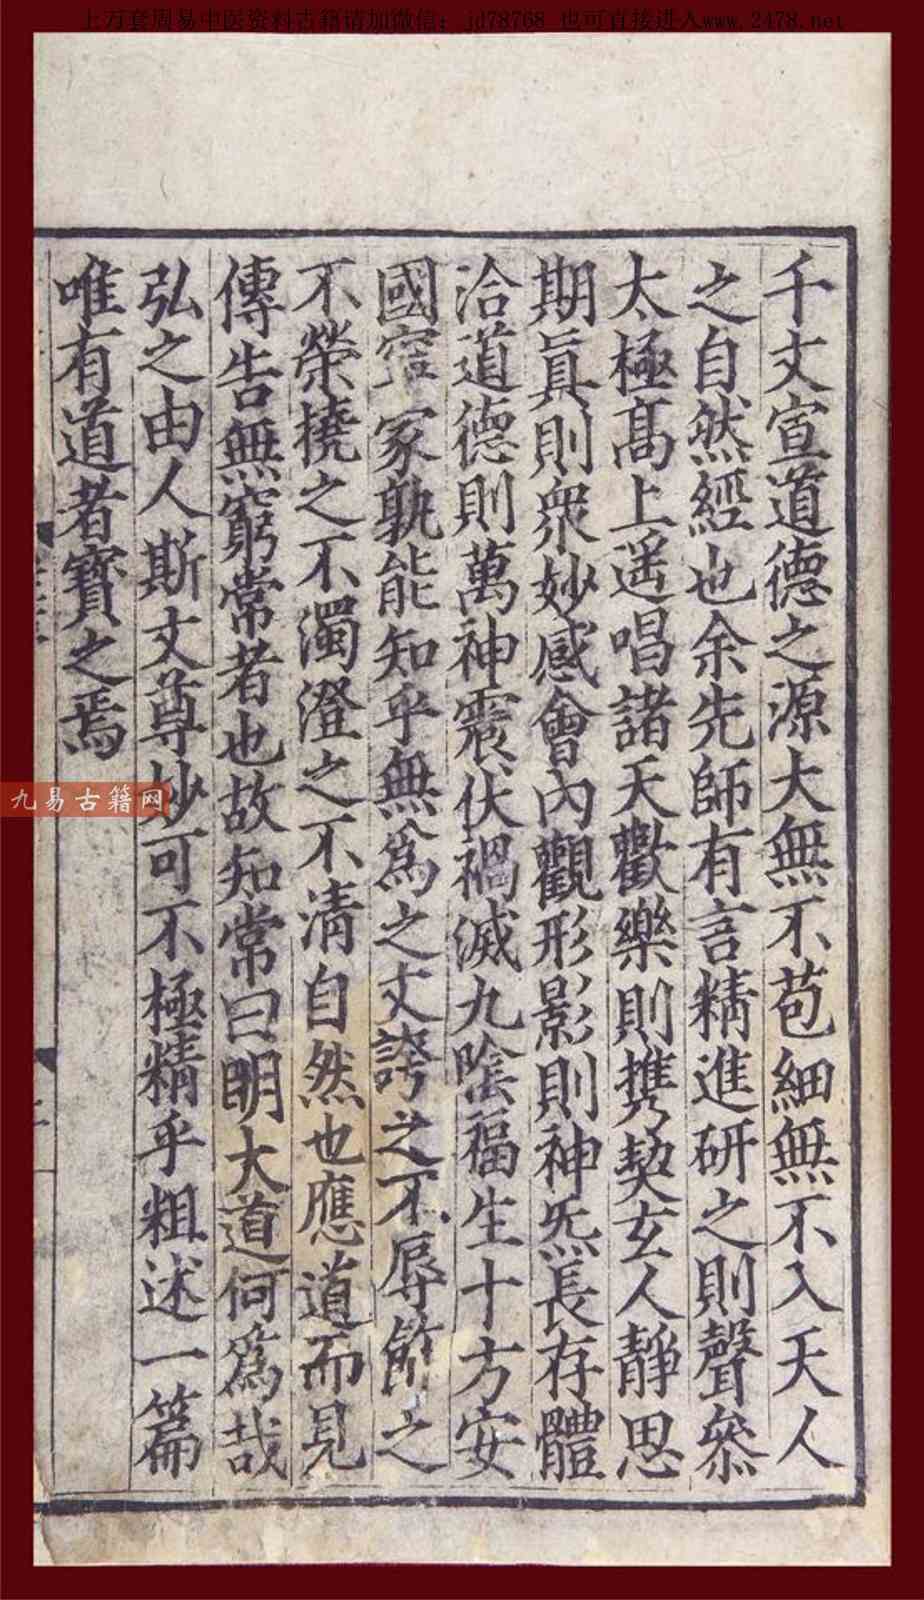 上万套周易中医资料古籍请加微信：jd78768 也可直接进入www.2478.net
千文宣道德之源大無不苞細無不入天人
之自然經也余先師有言精進研之則聲叅
太極髙上遥唱諸天歡樂則携契玄人靜思
期真則衆妙感會內觀形影則神炁長存體
洽道德則萬神震伏禍滅九陰福生十方安
國寧家孰能知乎無爲之文誇之不辱飾之
不榮撓之不濁澄之不清自然也應道而見
傳告無窮常者也故知常曰明大道何爲哉
弘之由人斯文尊妙可不極精乎粗述一篇
唯有道者寶之焉
九易古籍网